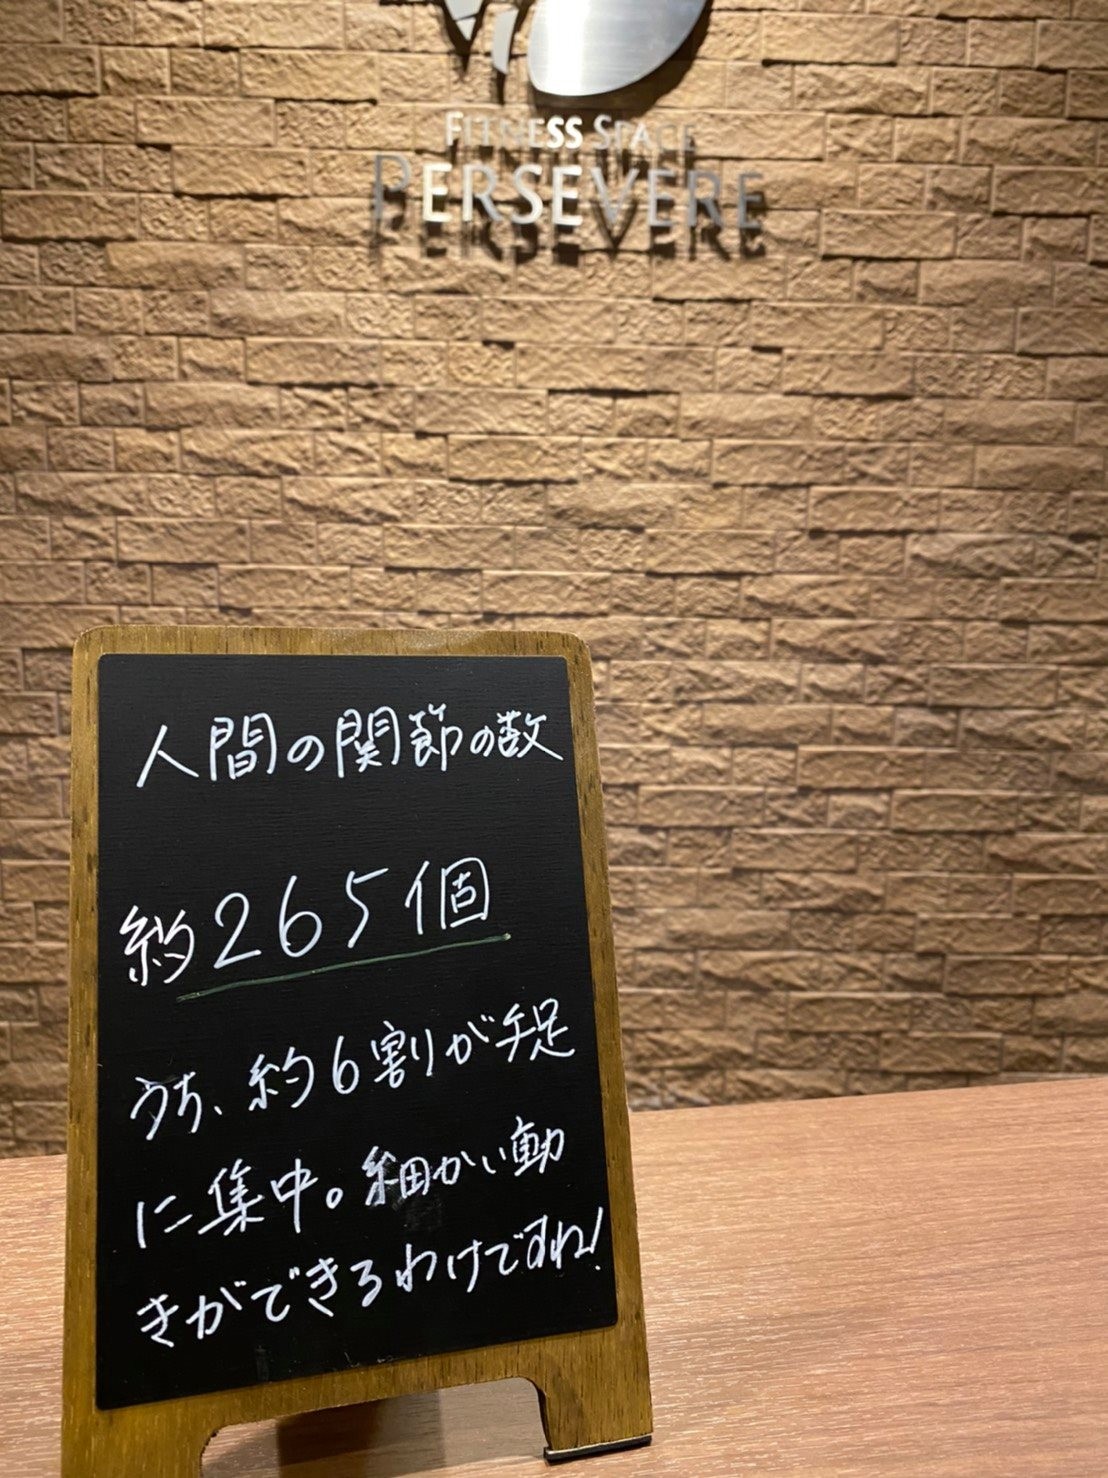 FITNESS SPACE
PERSEVERE
人間の関節の数
約265個
うち、約6割が手足
に集中。細かい動
きができるわけですね!